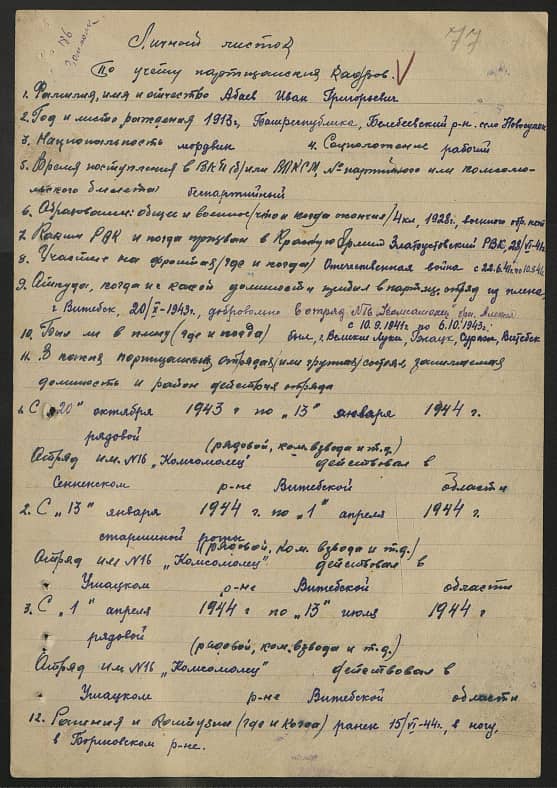 77
Личный листок
По учёту партизанских кадров. V
1. Фамилия, имя и отчество Абаев Иван Григорьевич
2. Год и место рождения 1913 г, Башреспублика, Белебеевский р-н. село
3. Национальность мордвин 4. Соцположение рабочий
5. Время поступления в ВКП(б) или ВЛКСМ, № партийного или комсомо-
льского билета беспартийный
6. Образование: общее и военное/что и когда окончил/ 4 кл, 1928 г, военного обр. нет
7. Каким РВК и когда призван в Красную Армию Златоустовский РВК, 28/VI-41
8. Участие на фронтах/где и когда/ Отечественная война с 22.6.41 по
9. Откуда, когда и с какой должности прибыл в партиз. отряд из плена,
г. Витебск, 20/X-1943 г, добровольно в отряд №16 "Комсомолец"
с 10.9.1941 г по 6.10.1943 г.
10. Был ли в плену (где и когда) был, г. Великие Луки, Витебск
11. В каких партизанских отрядах/или группах/состоял, занимаемая
должность и район действия отряда
1. С "20" октября 1943 г по "13" января 1944 г.
рядовой
(рядовой, ком. взвода и т.д.)
Отряд им. №16 "Комсомолец" действовал в
Сенненском р-не Витебской области
2. С "13" января 1944 г. по "1" апреля 1944 г.
старшиной роты
(рядовой, ком. взвода и т.д./
Отряд им №16 "Комсомолец" действовал в
Ушацком р-не Витебской области
3. С "1" апреля 1944 г по "13" июля 1944 г
рядовой
(рядовой, ком. взвода и т.д.)
Отряд им №16 "Комсомолец" действовал в
Ушацком р-не Витебской области
12. Ранения и контузии (где и когда) ранен 15/VI-44 г., в ногу,
в Борисовском р-не.